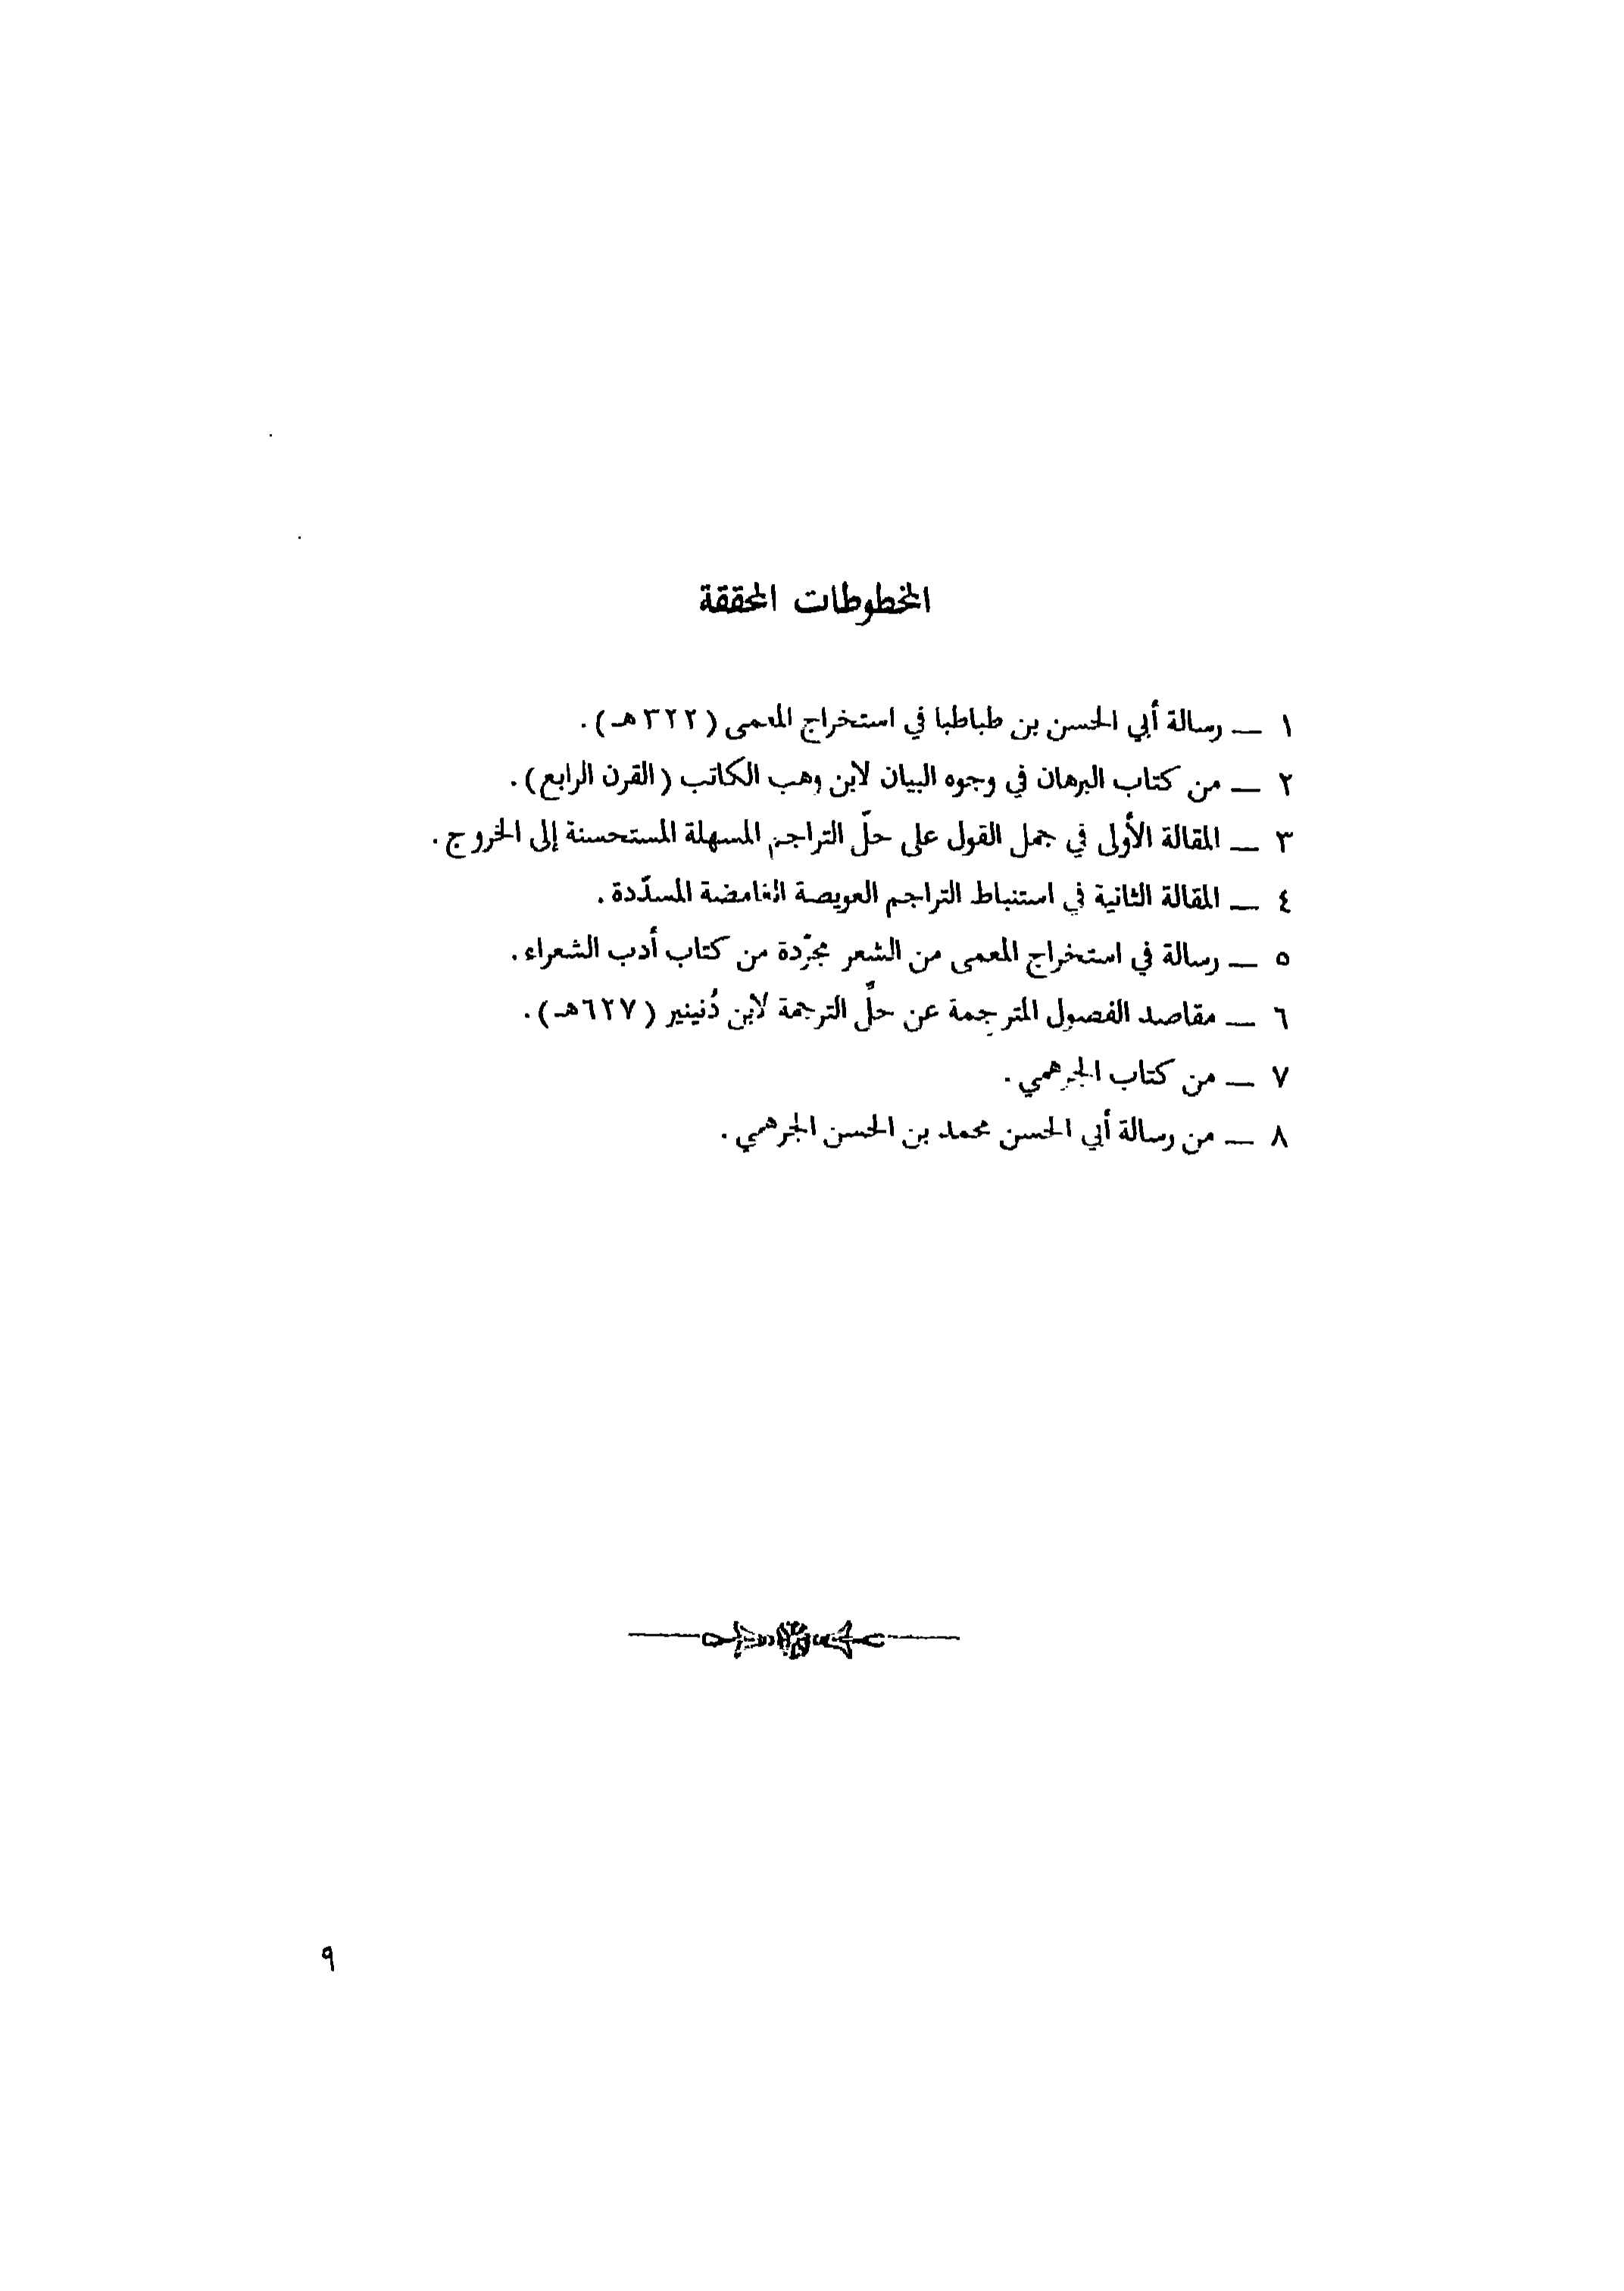 المخطوطات المحققة
١ — رسالة أبي الحسن بن طباطبا في استخراج المعمى (٣٢٢هـ).
٢ — من كتاب البرهان في وجوه البيان لابن وهب الكاتب (القرن الرابع).
٣ — المقالة الأولى في جمل القول على حلّ التراجم المسهلة المستحسنة إلى الخروج.
٤ — المقالة الثانية في استنباط التراجم العويصة الغامضة المسدّدة.
٥ — رسالة في استخراج المعمى من الشعر مجرّدة من كتاب أدب الشعراء.
٦ — مقاصد الفصول المترجمة عن حلّ الترجمة لابن دُنينير (٦٢٧هـ).
٧ — من كتاب الجرهمي.
٨ — من رسالة أبي الحسن محمد بن الحسن الجرهمي.
٩